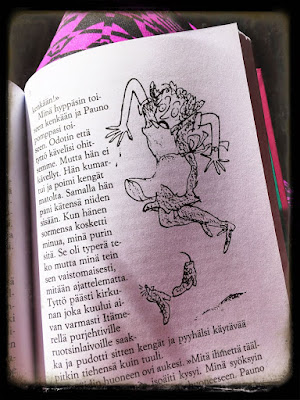 kenkään!»
Minä hyppäsin toi-
seen kenkään ja Pauno
pomppasi toi-
seen. Odotin että
tyttö kävelisi ohit-
semme. Mutta hän ei
kävellyt. Hän kumar-
tui ja poimi kengät
matolta. Samalla hän
pani kätensä niiden
sisään. Kun hänen
sormensa kosketti
minua, minä purin
sitä. Se oli typerä te-
ko mutta minä tein
sen vaistomaisesti,
mitään ajattelematta.
Tyttö päästi kirku-
nan joka kuului ai-
van varmasti Itäme-
rellä purjehtiville
ruotsinlaivoille saak-
ka ja pudotti sitten kengät ja pyyhälsi käytävää
pitkin tiehensä kuin tuuli.
huoneen ovi aukesi. »Mitä ihmettä tääl-
isoäiti kysyi. Minä syöksyin
huoneeseen. Pauno